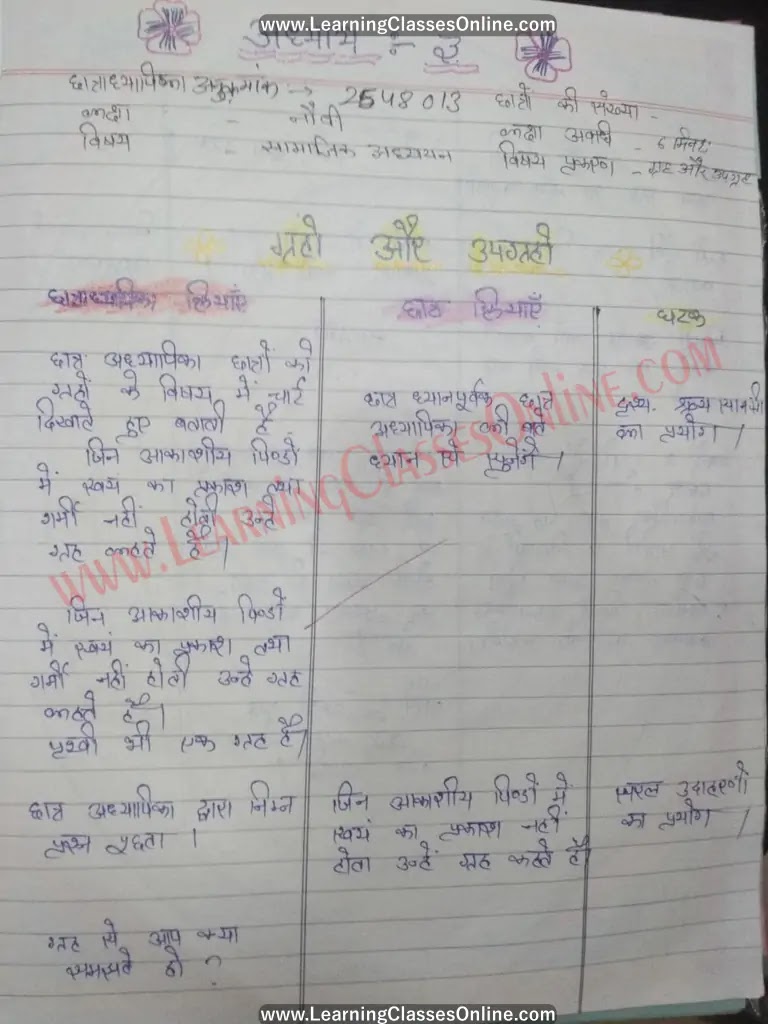 www.LearningClassesOnline.com
अध्याय :- 3
छात्राध्यापिका अनुक्रमांक → 2548013 छात्रों की संख्या -
कक्षा - नौवी कक्षा अवधि - 6 मिनट
विषय - सामाजिक अध्ययन विषय प्रकरण - ग्रह और उपग्रह
ग्रहो और उपग्रहो
छात्राध्यापिका क्रियाएँ
छात्र क्रियाएँ
घटक
छात्र अध्यापिका छात्रों को
ग्रहों के विषय में चार्ट
दिखाते हुए बताती है
जिन आकाशीय पिण्डो
में स्वयं का प्रकाश तथा
गर्मी नहीं होती उन्हें
ग्रह कहते है।
छात्र ध्यानपूर्वक छात्र
अध्यापिका की बाते
ध्यान से सुनेगे।
दृश्य. श्रव्य सामग्री
का प्रयोग।
जिन आकाशीय पिण्डो
में स्वयं का प्रकाश तथा
गर्मी नहीं होती उन्हे ग्रह
कहते है।
पृथ्वी भी एक ग्रह है।
छात्र अध्यापिका द्वारा निम्न
प्रश्न पूछता।
जिन आकाशीय पिण्डों में
स्वयं का प्रकाश नहीं
होता उन्हें ग्रह कहते है।
सरल उदाहरणो
का प्रयोग।
ग्रह से आप क्या
समझते हो?
www.LearningClassesOnline.com
www.LearningClassesOnline.com